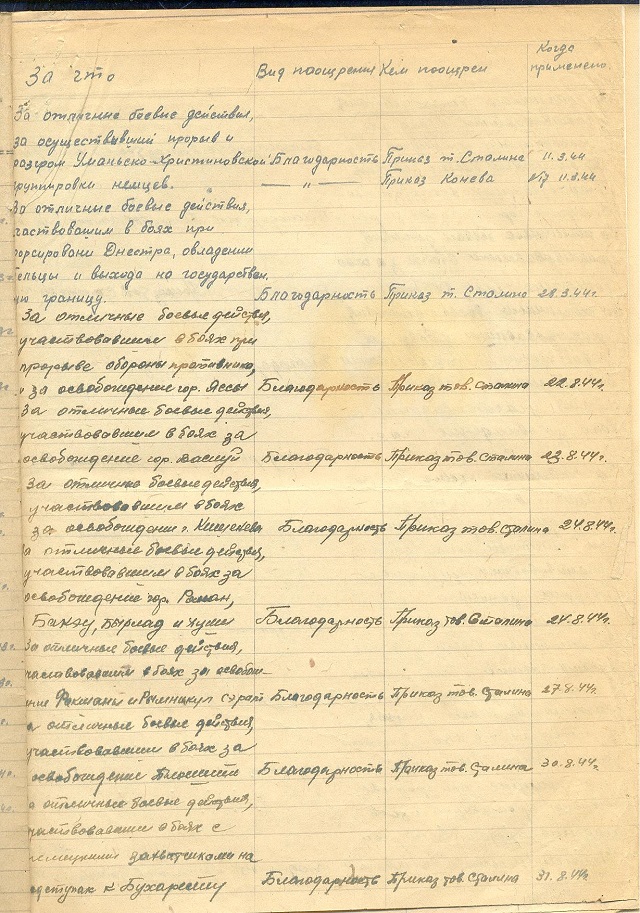 За что Вид поощрения Кем поощрен Когда применено
За отличные боевые действия,
за осуществивший прорыв и
разгром Уманьско-Христиновской Благодарность Приказ т. Сталина 11.3.44
группировки немцев. — " — Приказ Конева 11.3.44
За отличные боевые действия,
участвовавшим в боях при
форсировани Днестра, овладении
Бельцы и выхода на государствен
ую границу. Благодарность Приказ т. Сталина 28.3.44г
За отличные боевые действия,
участвовавшим в боях при
прорыве обороны противника,
и за освобождение гор. Яссы Благодарность Приказ тов. Сталина 22.8.44г.
За отличные боевые действия,
участвовавшим в боях за
освобождение гор. Васлуй Благодарность Приказ тов. Сталина 23.8.44г.
За отлично боевые действия,
участвовавшим в боях
за освобождение г. Кишенева Благодарность Приказ тов. Сталина 24.8.44г.
а отличные боевые действия,
участвовавшим в боях за
освобождение гор. Роман,
Бакэу, Бырлад и Хуши Благодарность Приказ тов. Сталина 24.8.44г.
За отличные боевые действия,
участвовавшим в боях за освобож-
ение Фокшаны и Рымникул Сэрат Благодарность Приказ тов. Сталина 27.8.44г.
а отличные боевые действия,
участвовавшим в боях за
освобождение Плоешти Благодарность Приказ тов. Сталина 30.8.44г.
а отличные боевые действия,
участвовавшим в боях с
немецкими захватчиками на
одступак к Бухаресту Благодарность Приказ тов. Сталина 31.8.44г